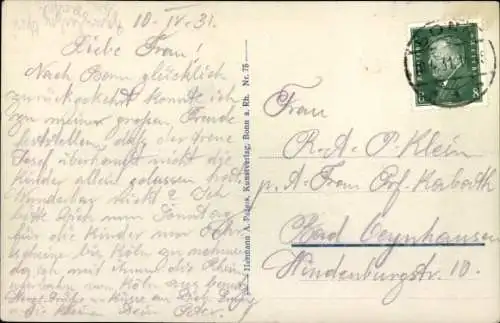 10-IV-31.
Liebe Frau!
Nach Bonn glücklich
zurückgekehrt konnte ich
zu meiner großen Freude
feststellen, daß der treue
Josef überhaupt nicht die
Kinder allein gelassen hat.
Wunderbar nicht? Ich
bitte Dich nun Sonntag
für die Kinder nur
scheine bis Köln zu nehmen
da ich mit ihnen die
von Köln aus
Herzl. Grüße u. Küsse an Dich
die Kleinen Dein Peter.
Hermann A. Peters, Kunstverlag, Bonn a. Rh. Nr. 75
BONN
Frau
R.-A. P. Klein
p. A. Frau Prof.
Bad Oeynhausen
Hindenburgstr. 10.